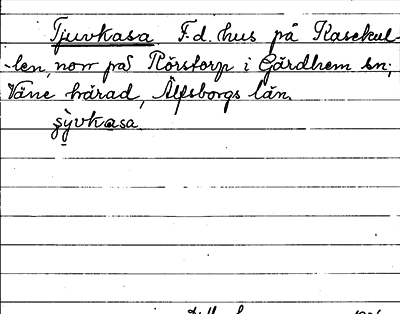 Tjuvkasa F.d. hus på Kasekul-
-len, norr på Rörstorp i Gärdhem sn;
Väne härad, Älfsborgs län.